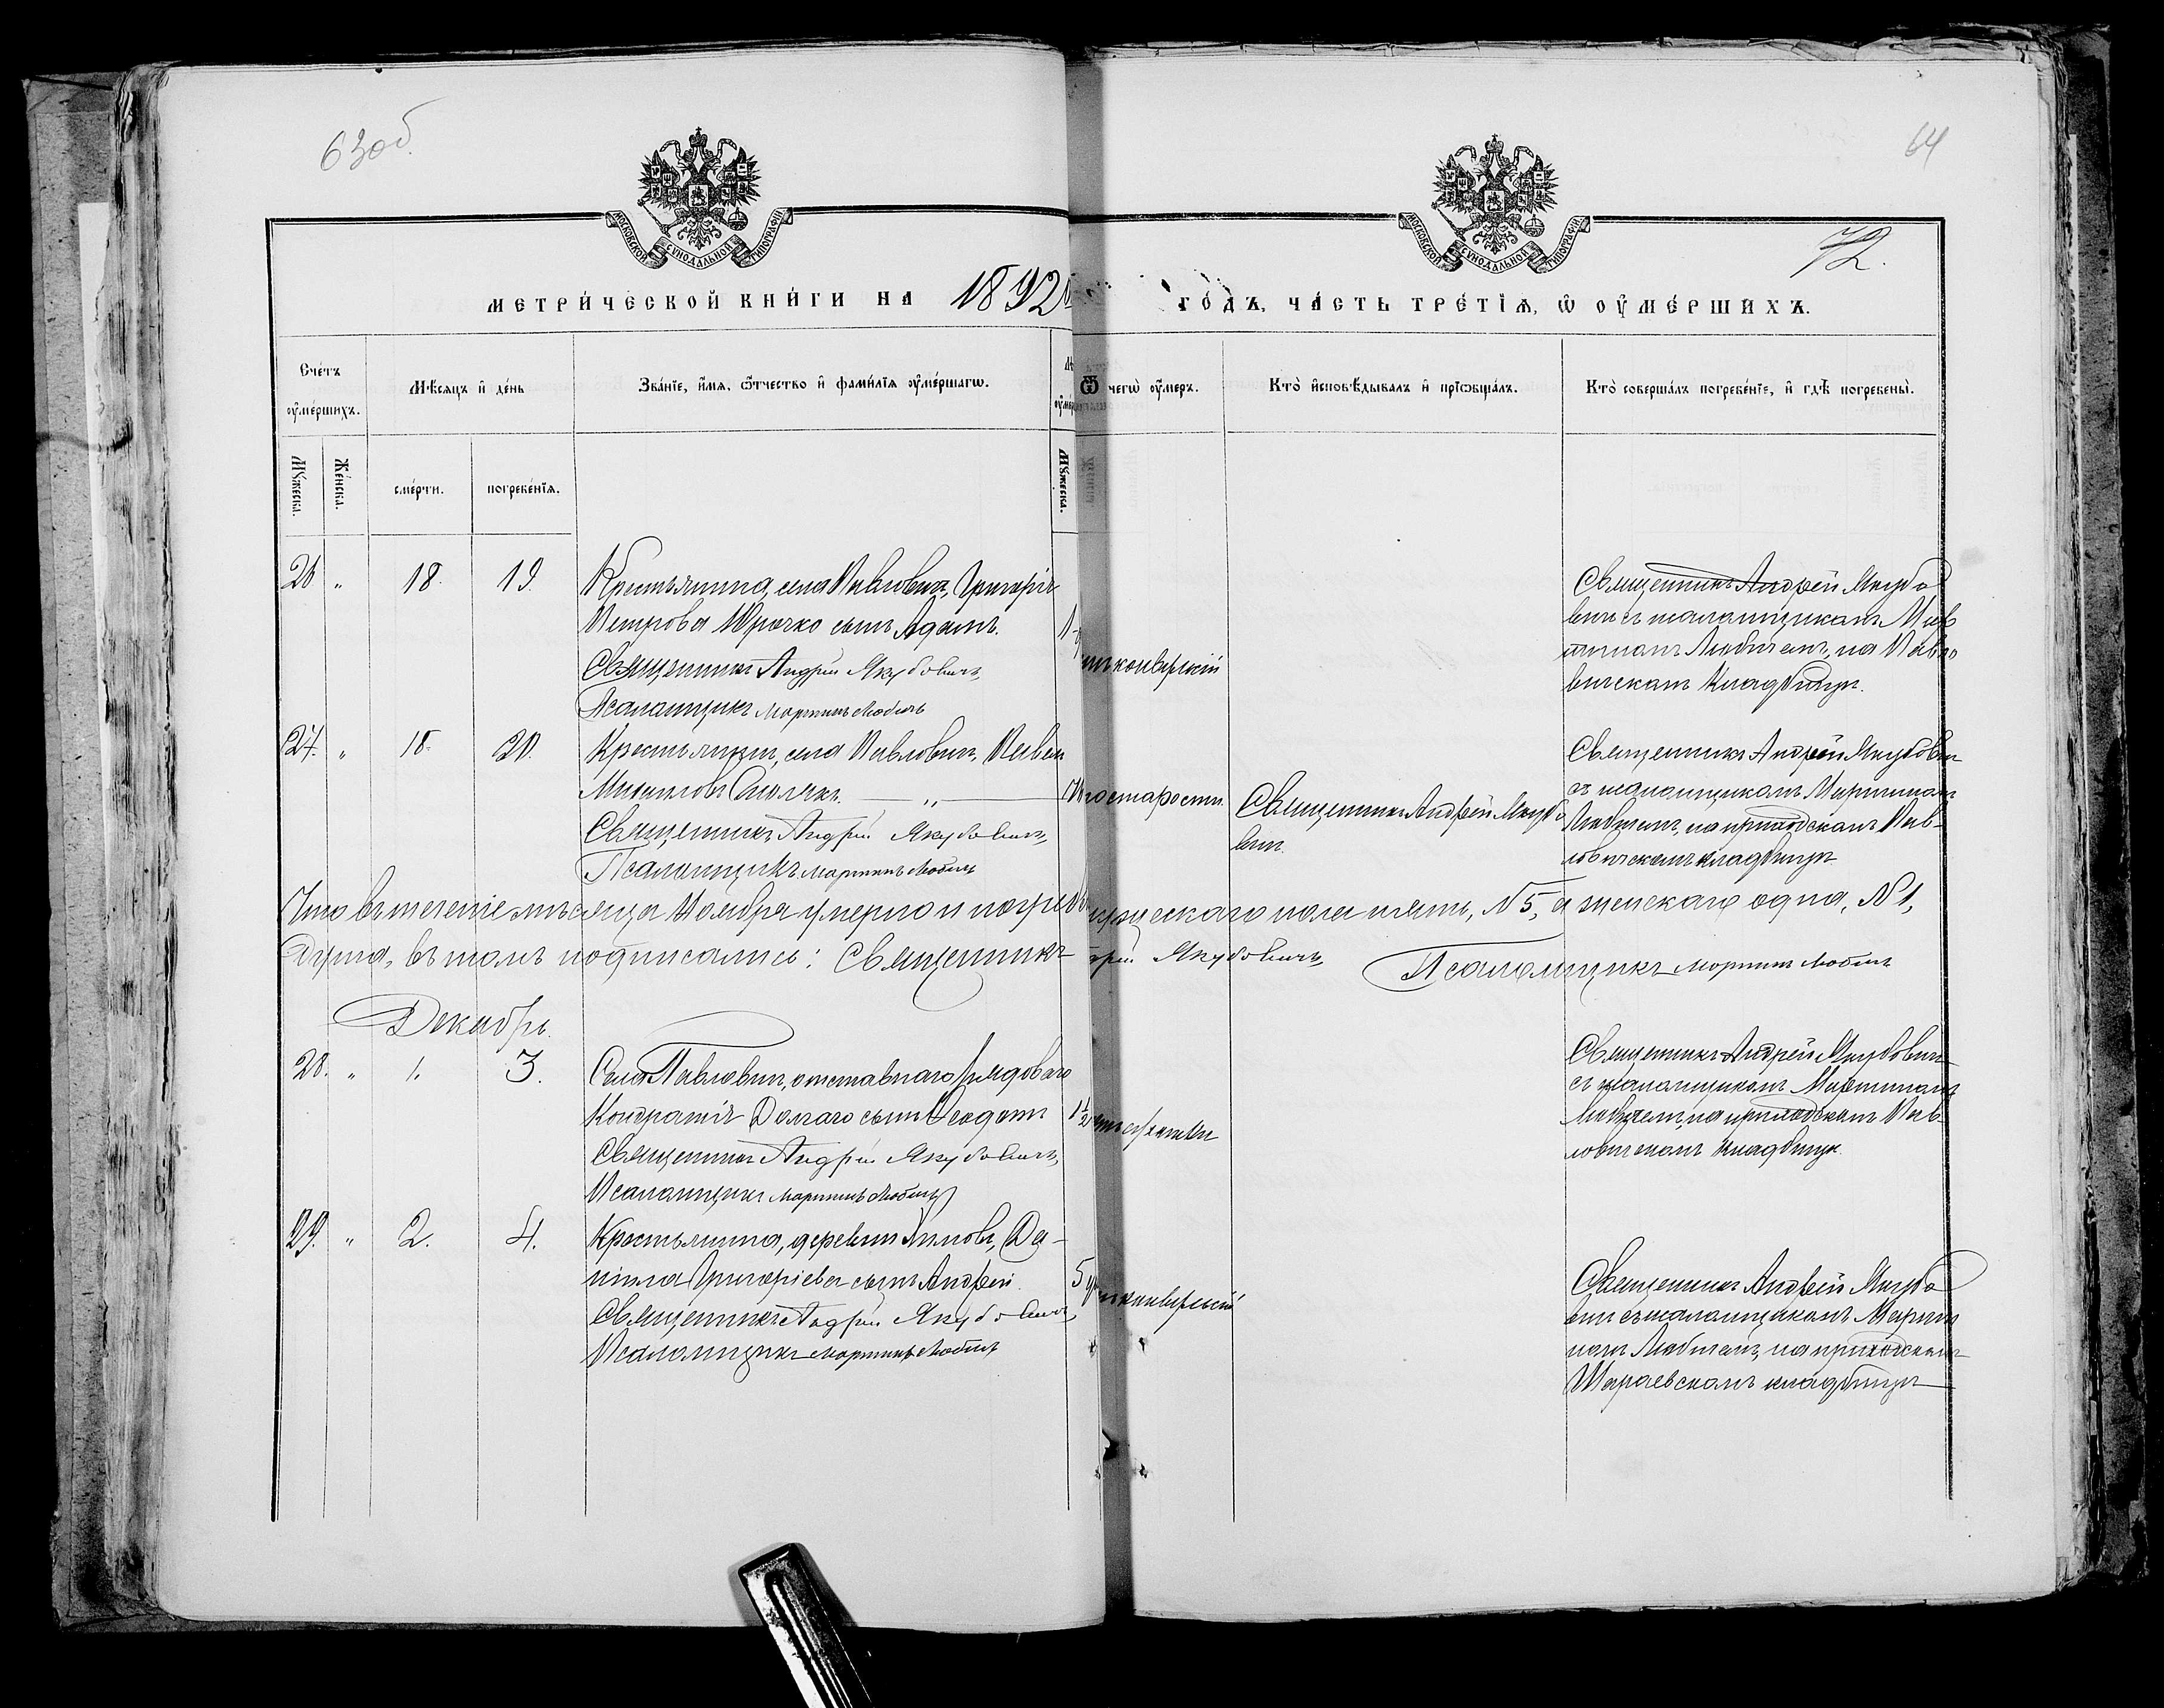 63об.
64
МОСКОВСКОЙ СѴНОДАЛЬНОЙ ТИПОГРАФІИ
МОСКОВСКОЙ СѴНОДАЛЬНОЙ ТИПОГРАФІИ
72.
МЕТРИ́ЧЕСКОЙ КНИ́ГИ НА 1892й
ГО́ДЪ, ЧА́СТЬ ТРЕ́ТІѦ, Ѿ ОУ҆МЕ́РШИХЪ.
Сче́тъ оу҆ме́ршихъ.
Мѣ́сяцъ и҆ де́нь
Зва́нїе, и҆́мя, ѻ҆́тчество и҆ фами́лїя оу҆ме́ршагѡ.
Ѿ чегѡ̀ оу҆́меръ.
Кто̀ и҆сповѣ́дывалъ и҆ прїѡбща́лъ.
Кто̀ соверша́лъ погребе́нїе, и҆ гдѣ̀ погребены̀.
Мꙋ́жеска.
Же́нска.
сме́рти.
погребе́нїя.
Мꙋ́жеска.
26 " 18. 19. Крестьянина, села Павловичъ, Григорія
Петрова Юрочко сынъ Адамъ.
Священникъ Андрей Якубовичъ,
Псаломщикъ Мартинъ Любичъ
1
Священникъ Андрей Якубо
вичъ съ псаломщикомъ Мар
тиномъ Любичемъ, на Павло
вичскомъ кладбищѣ.
27. " 18. 20. Крестьянинъ, села Павловичъ, Павелъ
Михаиловъ Смолякъ. — " —
Священникъ Андрей Якубовичъ,
Псаломщикъ Мартинъ Любичъ
старости.
Священникъ Андрей Якубо
вичъ.
Священникъ Андрей Якубович
съ псаломщикомъ Мартиномъ
Любичемъ, на приходскомъ Пав-
ловичскомъ кладбищѣ.
Что въ теченіе мѣсяца Ноября умерло и погреб мужескаго пола пять, № 5, а женскаго одна, № 1,
душа, въ томъ подписались: Священникъ Якубовичъ, Псаломщикъ Мартинъ Любичъ
Декабрь.
28. " 1. 3. Села Павловичъ, отставнаго рядоваго
Кондратія Долгаго сынъ Ѳеодотъ
Священникъ Андрей Якубовичъ,
Псаломщикъ Мартинъ Любичъ
1½
Священникъ Андрей Якубович
съ псаломщикомъ Мартиномъ
Любичемъ, на приходскомъ Пав-
ловичскомъ кладбищѣ.
29. " 2. 4. Крестьянина, деревни Липовъ, Да-
ніила Григоріева сынъ Андрей
Священникъ Андрей Якубовичъ,
Псаломщикъ Мартинъ Любичъ
5
Священникъ Андрей Якубо
вичъ съ псаломщикомъ Марти
номъ Любичемъ, на приходскомъ
Шараевскомъ кладбищѣ